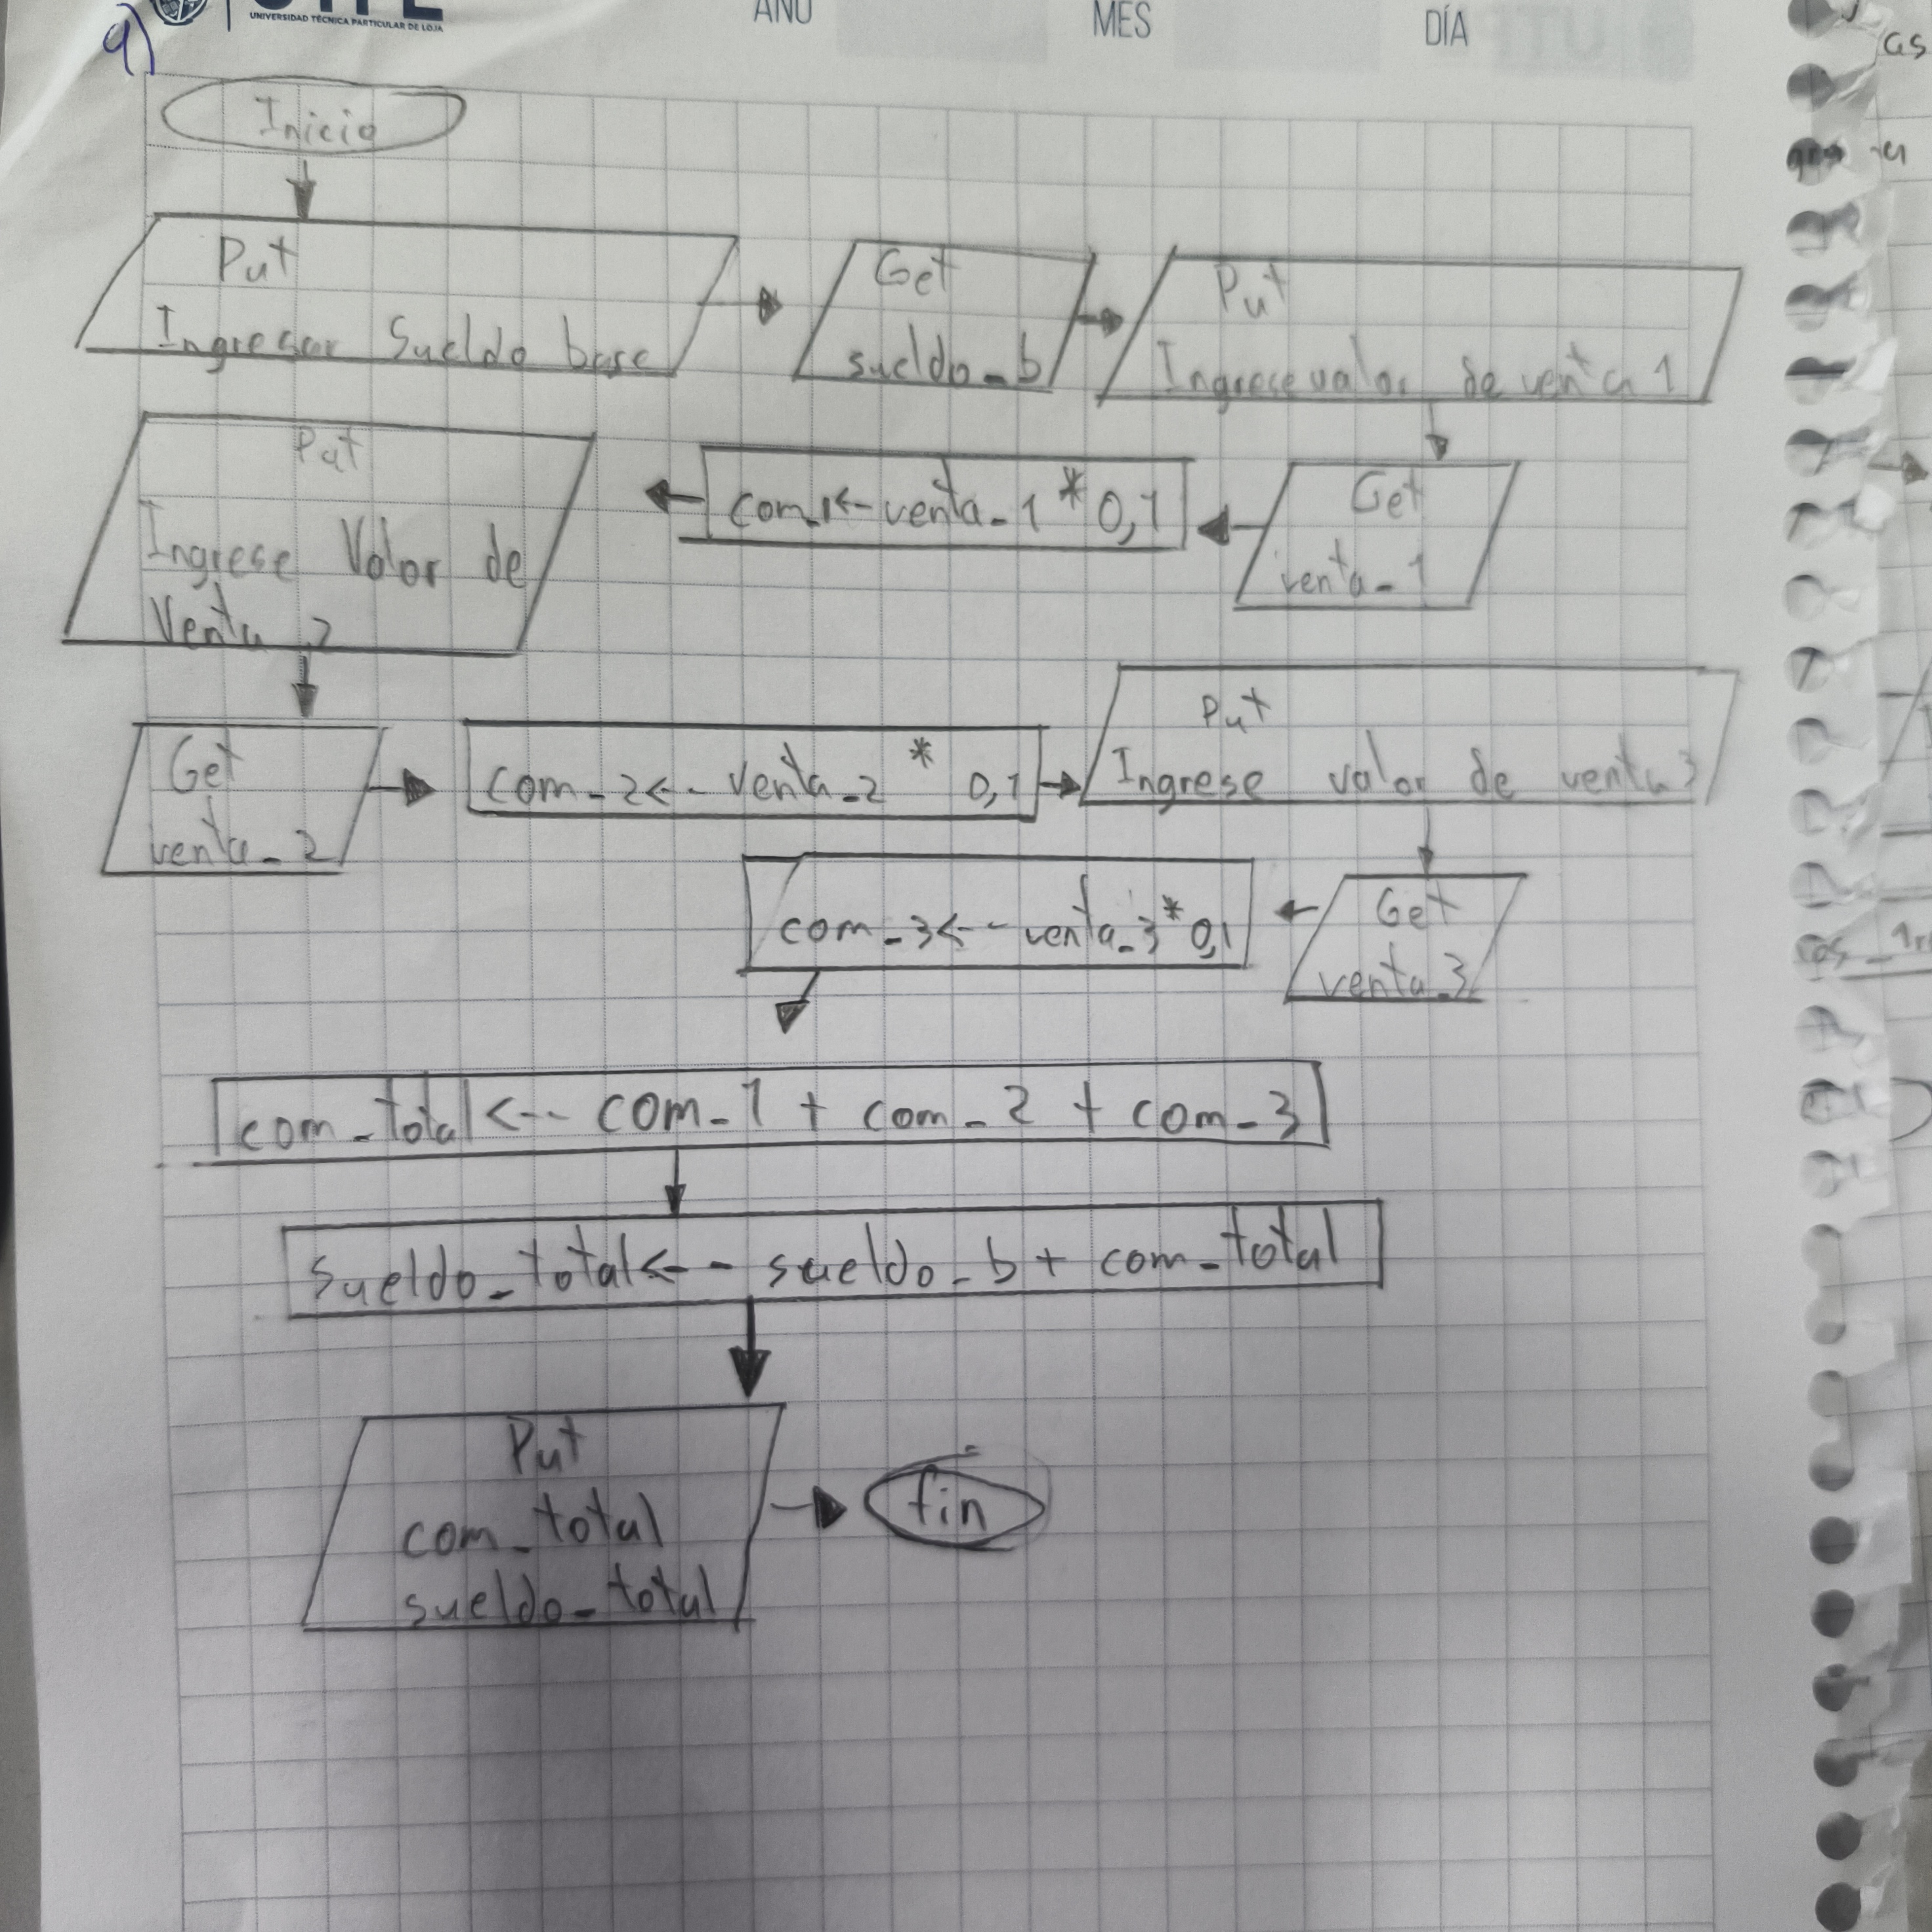 UNIVERSIDAD TÉCNICA PARTICULAR DE LOJA
AÑO
MES
DÍA
9)
Inicio
Put
Ingresar Sueldo base
Get
sueldo_b
Put
Ingrese valor de venta 1
Get
venta_1
com_1<-- venta_1 * 0,1
Put
Ingrese Valor de
Venta 2
Get
venta_2
com_2<-- venta_2 * 0,1
Put
Ingrese valor de venta 3
Get
venta_3
com_3<-- venta_3 * 0,1
com_total <-- com_1 + com_2 + com_3
sueldo_total<-- sueldo_b + com_total
Put
com_total
sueldo_total
fin